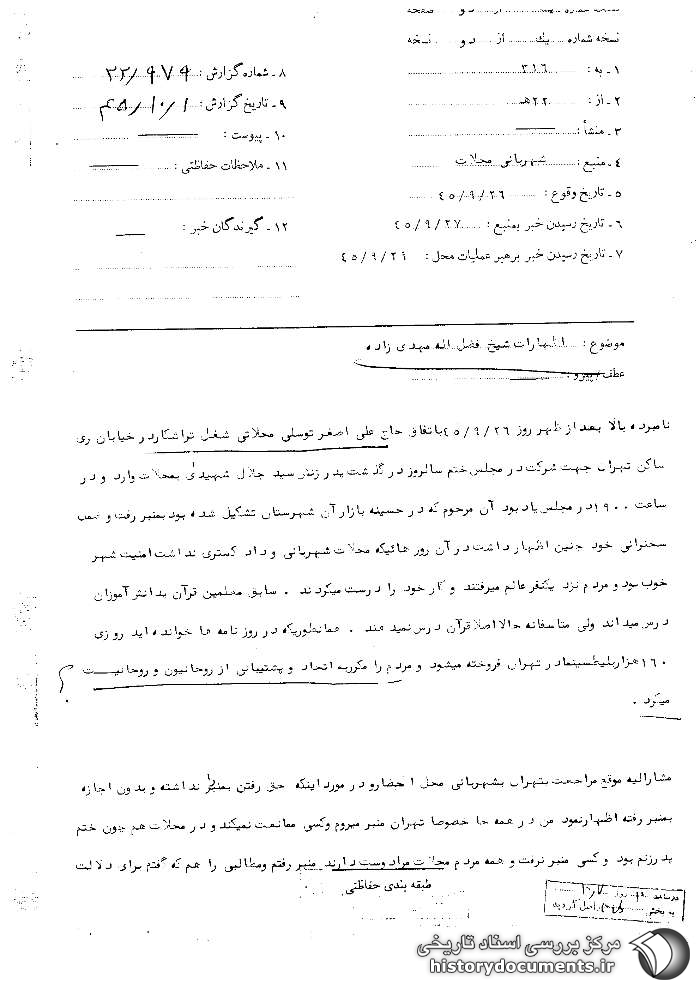 نسخه شماره يك از دو نسخه
۱ ـ به : ۳۱۶
۲ ـ از : ۲۲هـ
۳ ـ منشأ :
۴ ـ منبع : شهربانی محلات
۵ ـ تاریخ وقوع : ۴۵/۹/۲۶
۶ ـ تاریخ رسیدن خبر بمنبع : ۴۵/۹/۲۷
۷ ـ تاریخ رسیدن خبر برهبر عملیات محل : ۴۵/۹/۲۹
۸ ـ شماره گزارش : ۲۲/۹۷۹
۹ ـ تاریخ گزارش : ۴۵/۱۰/۱
۱۰ ـ پیوست :
۱۱ ـ ملاحظات حفاظتی :
۱۲ ـ گیرندگان خبر :
موضوع : اظهارات شیخ فضل اله مهدی زاده
عطف/پیرو :
نامبرده بالا بعد از ظهر روز ۴۵/۹/۲۶ باتفاق حاج علی اصغر توسلی محلاتی شغل تراشکار در خیابان ری
ساکن تهران جهت شرکت در مجلس ختم سالروز درگذشت پدر زنش سید جلال شهیدی بمحلات وارد و در
ساعت ۱۹۰۰ در مجلس یاد بود آن مرحوم که در حسینه بازار آن شهرستان تشکیل شده بود بمنبر رفت و ضمن
سخنرانی خود چنین اظهار داشت در آن روز هائیکه محلات شهربانی و داد گستری نداشت امنیت شهر
خوب بود و مردم نزد یکنفر عالم میرفتند و کار خود را درست میکردند . سابق معلمین قرآن بدانش آموزان
درس میداند ولی متاسفانه حالا اصلا قرآن درس نمید هند . همانطوریکه در روز نامه ها خوانده اید روزی
۱۶۰ هزار بلیط سینما در تهران فروخته میشود و مردم را مکرر به اتحاد و پشتیبانی از روحانیون و روحانیت
میکرد .
مشارالیه موقع مراجعت بتهران بشهربانی محل احضار و در مورد اینکه حق رفتن بمنبر نداشته و بدون اجازه
بمنبر رفته اظهار نمود من در همه جا خصوصا تهران منبر میروم وکسی ممانعت نمیکند و در محلات هم چون ختم
پدر زنم بود و کسی منبر نرفت و همه مردم محلات مراد وست دارند منبر رفتم ومطالبی را هم که گفتم برای دلالت
طبقه بندی حفاظتی
مرکز بررسی اسناد تاریخی
historydocuments.ir